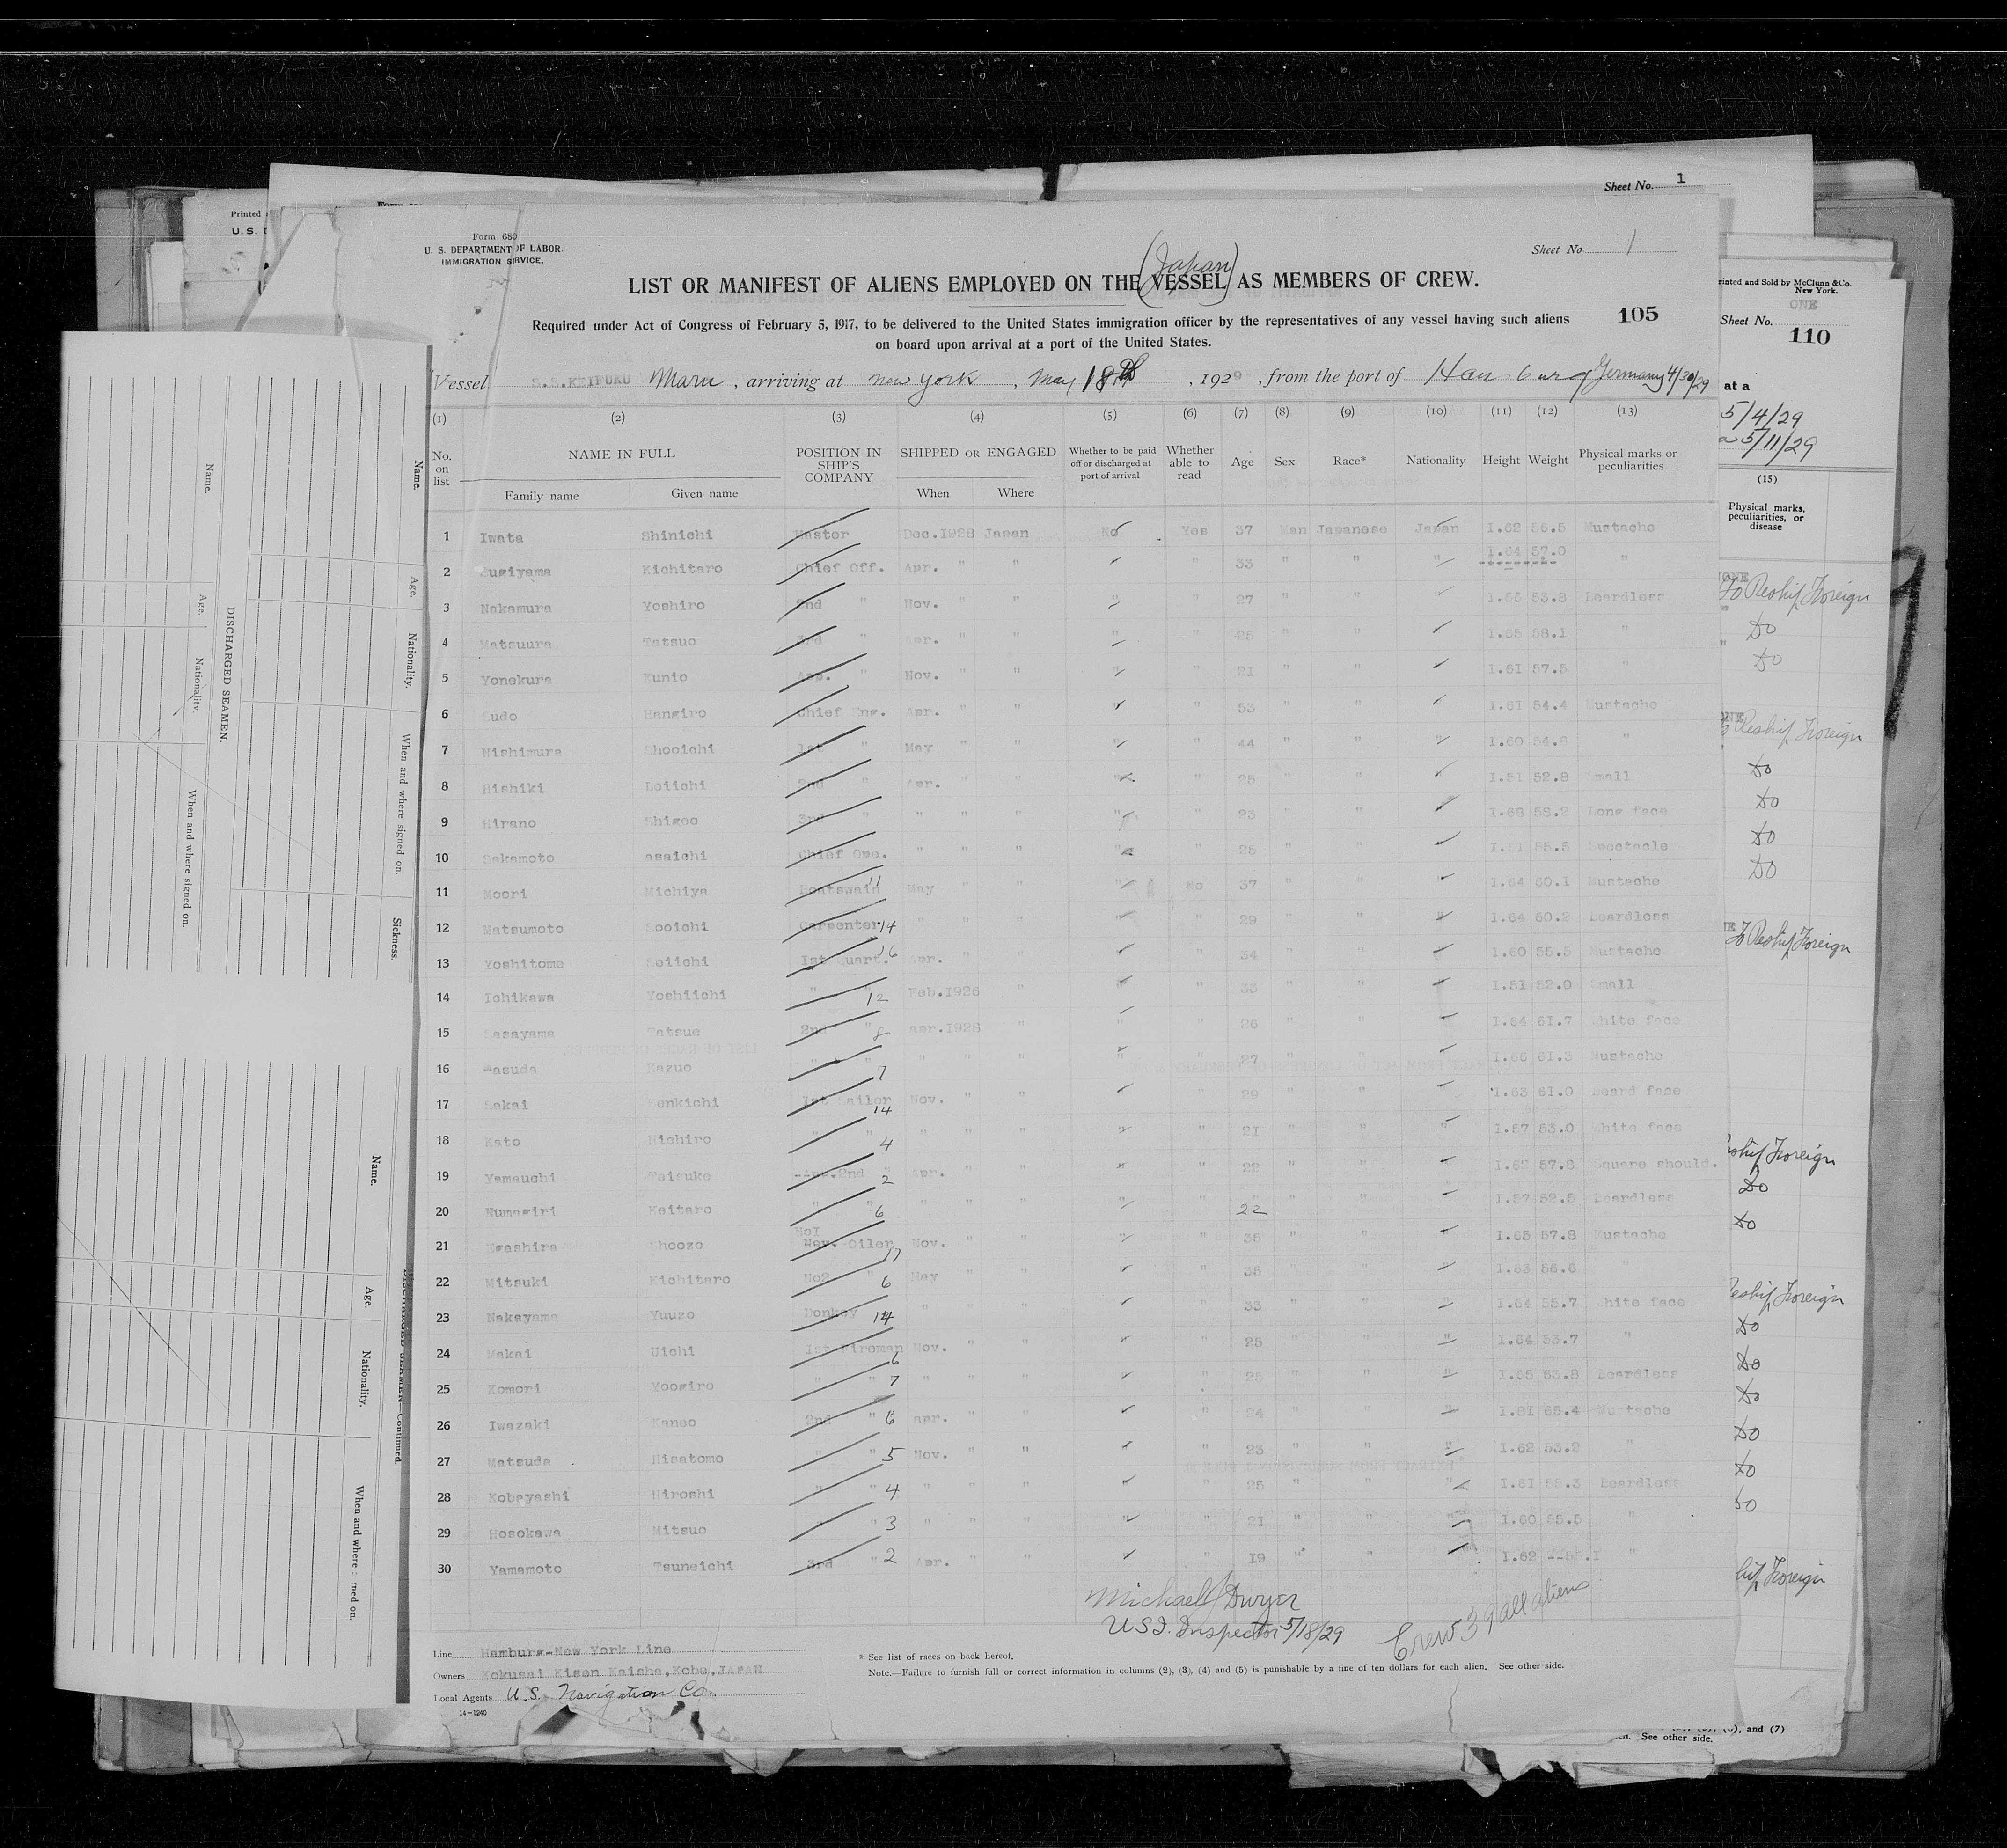 Sheet No. 1
Printed
U. S. D
Form 680
U. S. DEPARTMENT OF LABOR.
IMMIGRATION SERVICE.
Sheet No 1
(Japan)
LIST OR MANIFEST OF ALIENS EMPLOYED ON THE VESSEL AS MEMBERS OF CREW.
105
Required under Act of Congress of February 5, 1917, to be delivered to the United States immigration officer by the representatives of any vessel having such aliens
on board upon arrival at a port of the United States.
Vessel S.S.KEIFUKU Maru, arriving at new york, May 18th, 1929, from the port of Hamburg Germany 4/30/29
(1) (2) (3) (4) (5) (6) (7) (8) (9) (10) (11) (12) (13)
No. on list NAME IN FULL POSITION IN SHIP'S COMPANY SHIPPED OR ENGAGED Whether to be paid off or discharged at port of arrival Whether able to read Age Sex Race* Nationality Height Weight Physical marks or peculiarities
Family name Given name When Where
1 Iwata Shinichi Master Dec.1928 Japan No Yes 37 Man Japanese Japan 1.62 56.5 Mustache
2 Sugiyama Kichitaro Chief Off. Apr. " " " " 33 " " " 1.64 57.0 "
3 Nakamura Yoshiro 2nd " Nov. " " " " 27 " " " 1.65 53.8 Beardless
4 Matsuura Tatsuo 3rd " Apr. " " " " 25 " " " 1.65 58.1 "
5 Yonekura Kunio App. " Nov. " " " " 21 " " " 1.61 57.5 "
6 Sudo Hangiro Chief Eng. Apr. " " " " 53 " " " 1.61 54.4 Mustache
7 Nishimura Shooichi 1st " May " " " " 44 " " " 1.60 54.8 "
8 Hishiki Loiichi 2nd " Apr. " " " " 25 " " " 1.51 52.8 Small
9 Hirano Shigeo 3rd " " " " " " 23 " " " 1.68 58.2 Long face
10 Sakamoto asaichi Chief Ope. " " " " " 25 " " " 1.51 55.5 Spectacle
11 Moori Michiya Boatswain 11 May " " " No 37 " " " 1.64 60.1 Mustache
12 Matsumoto Sooichi Carpenter 14 " " " " " 29 " " " 1.64 60.2 Beardless
13 Yoshitomo Seiichi 1st Quart. 16 Apr. " " " " 34 " " " 1.60 55.5 Mustache
14 Ichikawa Yoshiichi " " 12 Feb.1926 " " " 33 " " " 1.51 52.0 Small
15 Sasayama Tatsue 2nd " 8 apr.1928 " " " 26 " " " 1.64 61.7 White face
16 Masuda Kazuo " " 7 " " " " " 27 " " " 1.66 61.3 Mustache
17 Sakai Genkichi 1st Sailor 14 Nov. " " " " 29 " " " 1.63 61.0 Beard face
18 Kato Hichiro " " 4 " " " " " 21 " " " 1.57 53.0 White face
19 Yamauchi Taisuke 2nd " 2 Apr. " " " " 22 " " " 1.62 57.8 Square should.
20 Kumagiri Keitaro " " 6 " " " " " 22 " " " 1.57 52.5 Beardless
21 Egashira Shoozo No1 Oiler 17 Nov. " " " " 35 " " " 1.65 57.8 Mustache
22 Mitsuki Kichitaro No2 " 6 May " " " " 35 " " " 1.63 56.6 "
23 Nakayama Yuuzo Donkey 14 " " " " " 33 " " " 1.64 55.7 White face
24 Nakai Uichi 1st Fireman 6 Nov. " " " " 25 " " " 1.64 53.7 "
25 Komori Yoogiro " " 7 " " " " " 25 " " " 1.65 63.8 Beardless
26 Iwazaki Kaneo 2nd " 6 apr. " " " " 24 " " " 1.61 65.4 Mustache
27 Matsuda Hisatomo " " 5 Nov. " " " " 23 " " " 1.62 53.2 "
28 Kobayashi Hiroshi " " 4 " " " " " 25 " " " 1.61 55.3 Beardless
29 Hosokawa Mitsuo " " 3 " " " " " 21 " " " 1.60 55.5 "
30 Yamamoto Tsuneichi 3rd " 2 Apr. " " " " 19 " " " 1.62 55.1 "
Michael J Dwyer
U S I. Inspector 5/18/29
Crew 39 all aliens
Line Hamburg-New York Line
Owners Kokusai Kisen Kaisha, Kobe, JAPAN
Local Agents U.S. Navigation Co.
14-1240
* See list of races on back hereof.
Note.—Failure to furnish full or correct information in columns (2), (3), (4) and (5) is punishable by a fine of ten dollars for each alien. See other side.
rinted and Sold by McClunn & Co.
New York.
ONE
Sheet No.
110
at a
5/4/29
5/11/29
(15)
Physical marks, peculiarities, or disease
To Reship Foreign
Do
Do
Reship Foreign
Do
Do
Do
Do
To Reship Foreign
Reship Foreign
Do
Do
Reship Foreign
Do
Do
Do
Do
Do
Do
Foreign
and (7)
See other side.
Name. Age. Nationality. When and where signed on. Sickness.
DISCHARGED SEAMEN.
Name. Age. Nationality. When and where signed on.
DISCHARGED SEAMEN—Continued.
Name. Age. Nationality. When and where signed on.